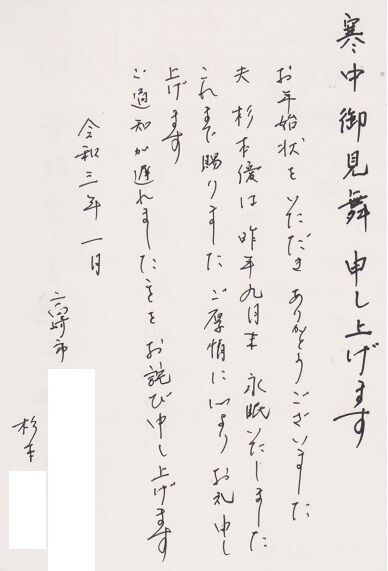 寒中御見舞申し上げます
お年始状をいただきありがとうございました
夫杉本優は昨年九月末永眠いたしました
これまで賜りましたご厚情に心よりお礼申し
上げます
ご通知が遅れましたことをお詫び申し上げます
令和三年一月
高崎市
杉本